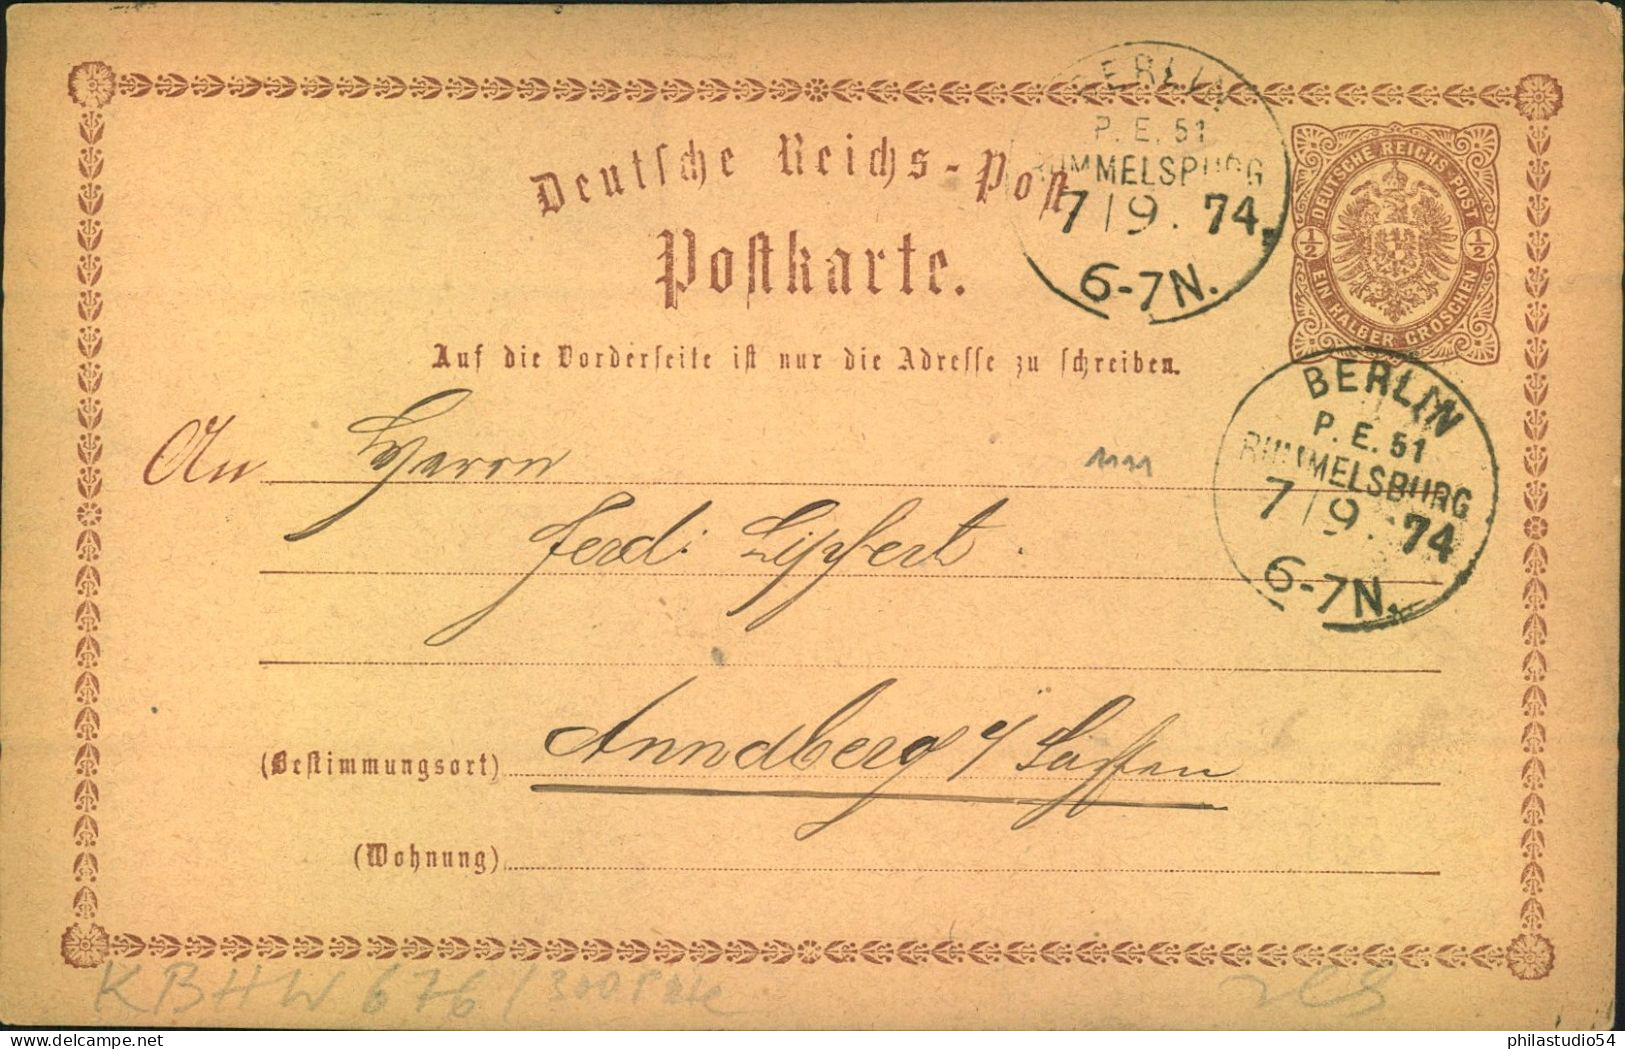 BERLIN
P. E. 51
RUMMELSBURG
7 / 9 . 74.
6-7N.
Deutsche Reichs-Post
Postkarte.
DEUTSCHE REICHS-POST
½ ½
EIN HALBER GROSCHEN
Auf die Vorderseite ist nur die Adresse zu schreiben.
BERLIN
P. E. 51
RUMMELSBURG
7 / 9 . 74
6-7N.
An Herrn
1111
Ferd: Lipfert.
(Bestimmungsort) Annaberg i/ Sachsen
(Wohnung)
KBHW 676 / 300
philastudio54